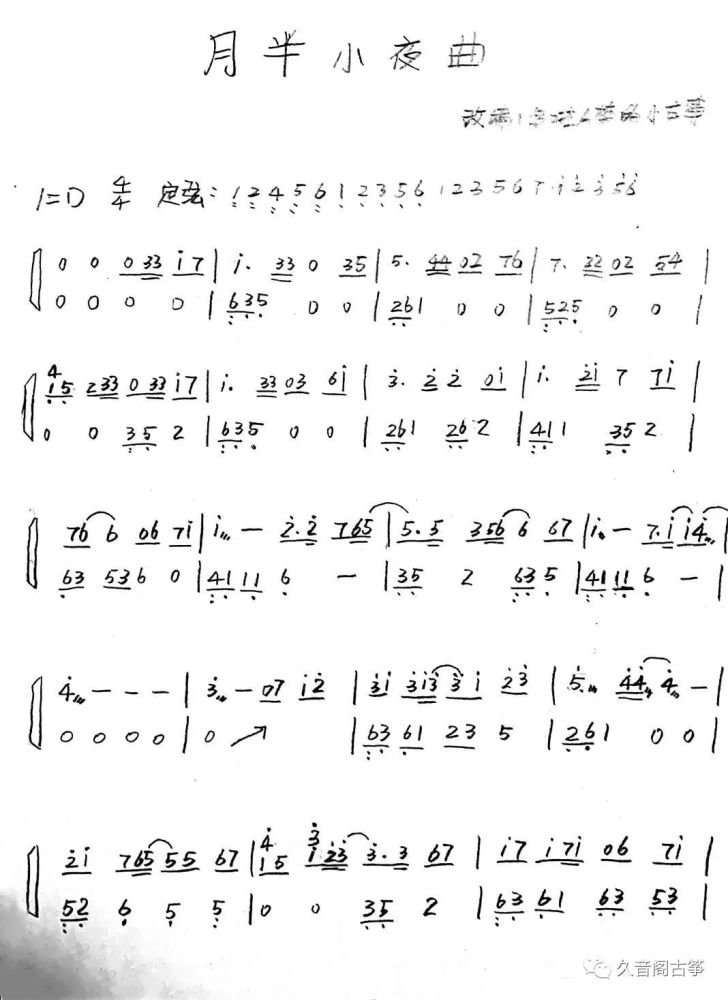 月半小夜曲
改编:
1=D 4/4 定弦: 1 2 4 5 6 1 2 3 5 6 1 2 3 5 6 7 i 2 3 5 6
0 0 0 33 i 7 | i. 33 0 35 | 5. 44 02 76 | 7. 32 02 54 |
0 0 0 0 | 635 0 0 | 261 0 0 | 525 0 0 |
4
15 233 033 i7 | i. 33 03 6i | 3. 2 2 0i | i. 2i 7 7i |
0 0 35 2 | 635 0 0 | 261 262 | 411 352 |
76 6 06 7i | i,,, — 2.2 765 | 5.5 356 6 67 | i,, — 7.i i4,,, |
63 536 0 | 41 11 6 — | 35 2 63 5 | 41 11 6 — |
4,,, — — — | 3,,, — 07 i2 | 3i 3i3 3 i 23 | 5.,,, 44,, 4,, — |
0 0 0 0 | 0 ↗ | 63 61 23 5 | 261 0 0 |
2i 765 55 67 | 4 15 3 i23 3.3 67 | i7 i7i 06 7i |
52 6 5 5 | 0 0 35 2 | 63 61 63 53 |
久音阁古筝